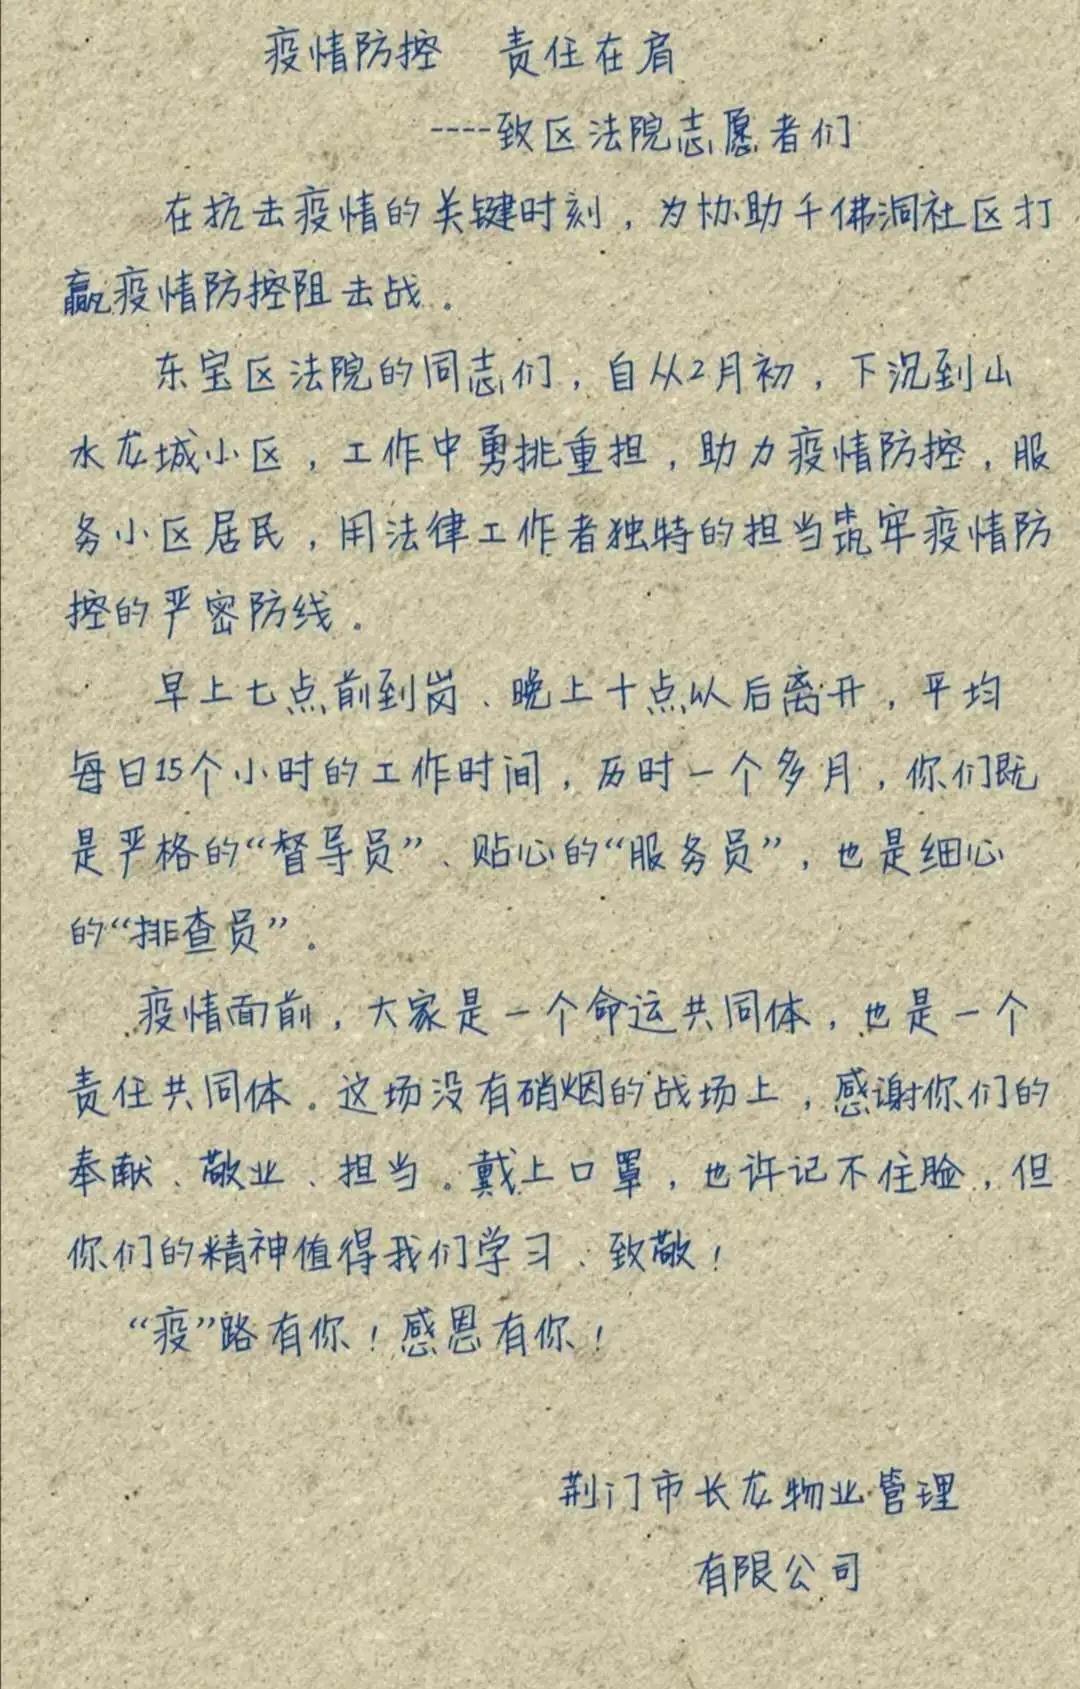 疫情防控　责任在肩
----致区法院志愿者们
在抗击疫情的关键时刻，为协助千佛洞社区打
赢疫情防控阻击战。
东宝区法院的同志们，自从2月初，下沉到山
水龙城小区，工作中勇挑重担，助力疫情防控，服
务小区居民，用法律工作者独特的担当筑牢疫情防
控的严密防线。
早上七点前到岗、晚上十点以后离开，平均
每日15个小时的工作时间，历时一个多月，你们既
是严格的“督导员”、贴心的“服务员”，也是细心
的“排查员”。
疫情面前，大家是一个命运共同体，也是一个
责任共同体。这场没有硝烟的战场上，感谢你们的
奉献、敬业、担当。戴上口罩，也许记不住脸，但
你们的精神值得我们学习、致敬！
“疫”路有你！感恩有你！
荆门市长龙物业管理
有限公司